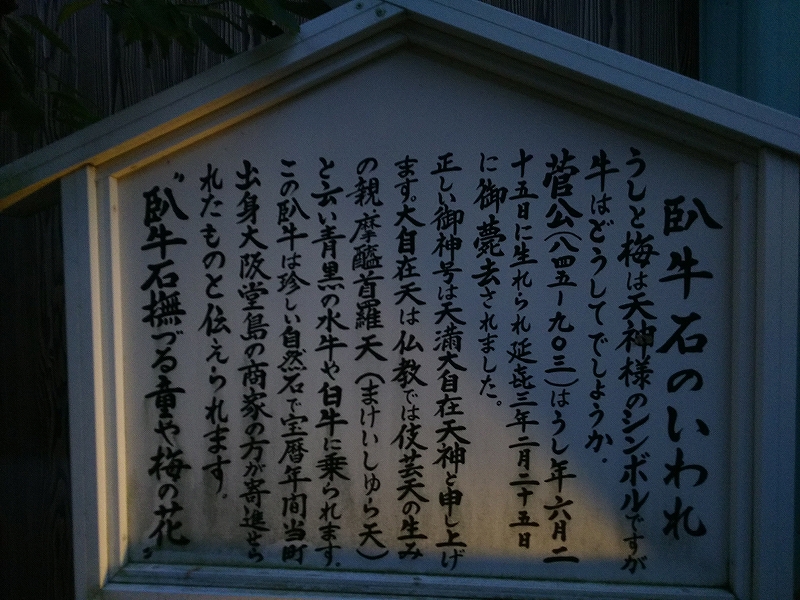 臥牛石のいわれ
うしと梅は天神様のシンボルですが
牛はどうしてでしようか.
菅公(八四五ー九〇三)はうし年六月二
十五日に生れられ延㐂三年二月二十五日
に御薨去されました。
正しい御神号は天満大自在天神と申し上げ
ます。大自在天は仏教では伎芸天の生み
の親 摩醯首羅天(まけいしゆら天)
と云い青黒の水牛や白牛に乗られます.
この臥牛は珍しい自然石で宝暦年間当町
出身大阪堂島の商家の方が寄進せら
れたものと伝えられます.
"臥牛石撫づる童や梅の花"